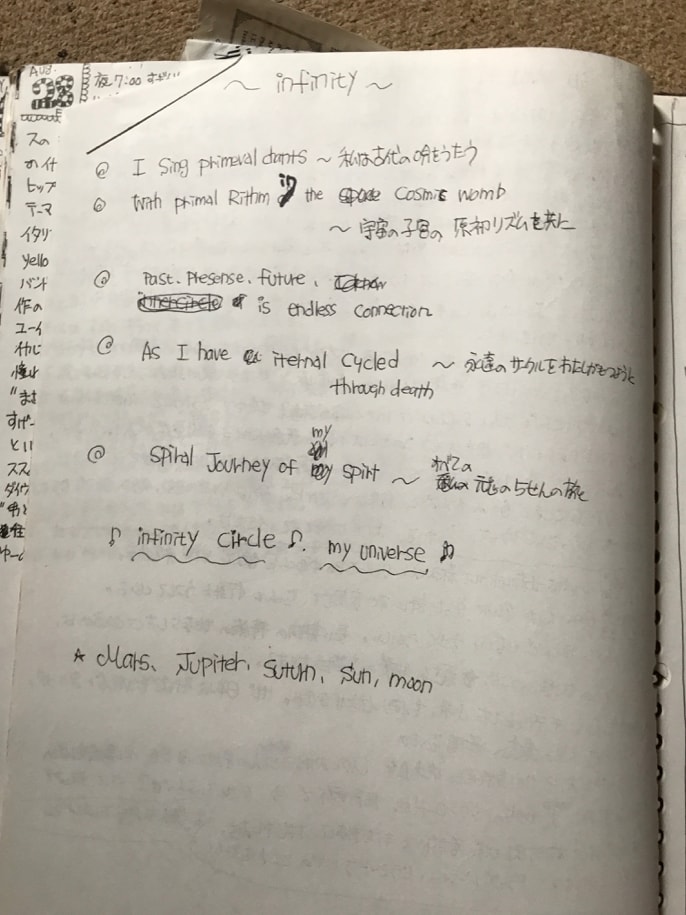 AUG
28
夜7:00
〜 infinity 〜
@ I Sing primeval chants 〜 私は古代の唄をうたう
@ With primal Rithm in the Cosmic womb
〜 宇宙の子宮の 原初リズムと共に
@ Past. Presense. future.
is endless connection
@ As I have iternal Cycled 〜 永遠のサークルをわたしがもつように
through death
my
@ Spiral Journey of spirit 〜
らせんの旅
♪ infinity circle ♪. my universe ♪
☆ Mars、 Jupiter, Suturn, Sun, moon
スの
カイ付
ヒップ
テーマ
イタリ
yello
バンド
作の
ユーイ
すげー
とい
ススメ